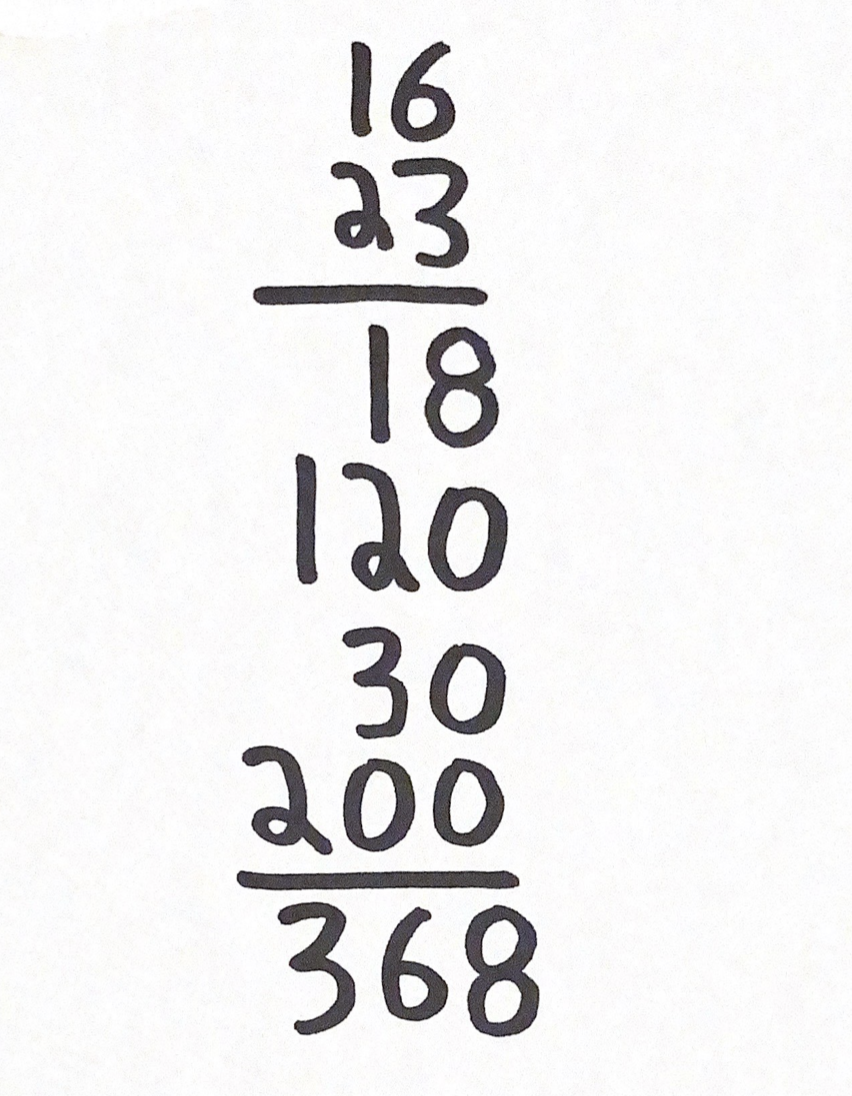 16
23
18
120
30
200
368